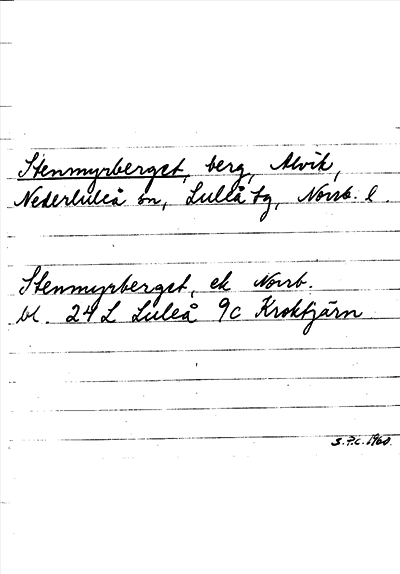 Stenmyrberget, berg, Alvik,
Nederluleå sn, Luleå tg, Norrb. l.
Stenmyrberget, ek Norrb.
bl. 24 L Luleå 9c Kroktjärn
S.P.C. 1960.